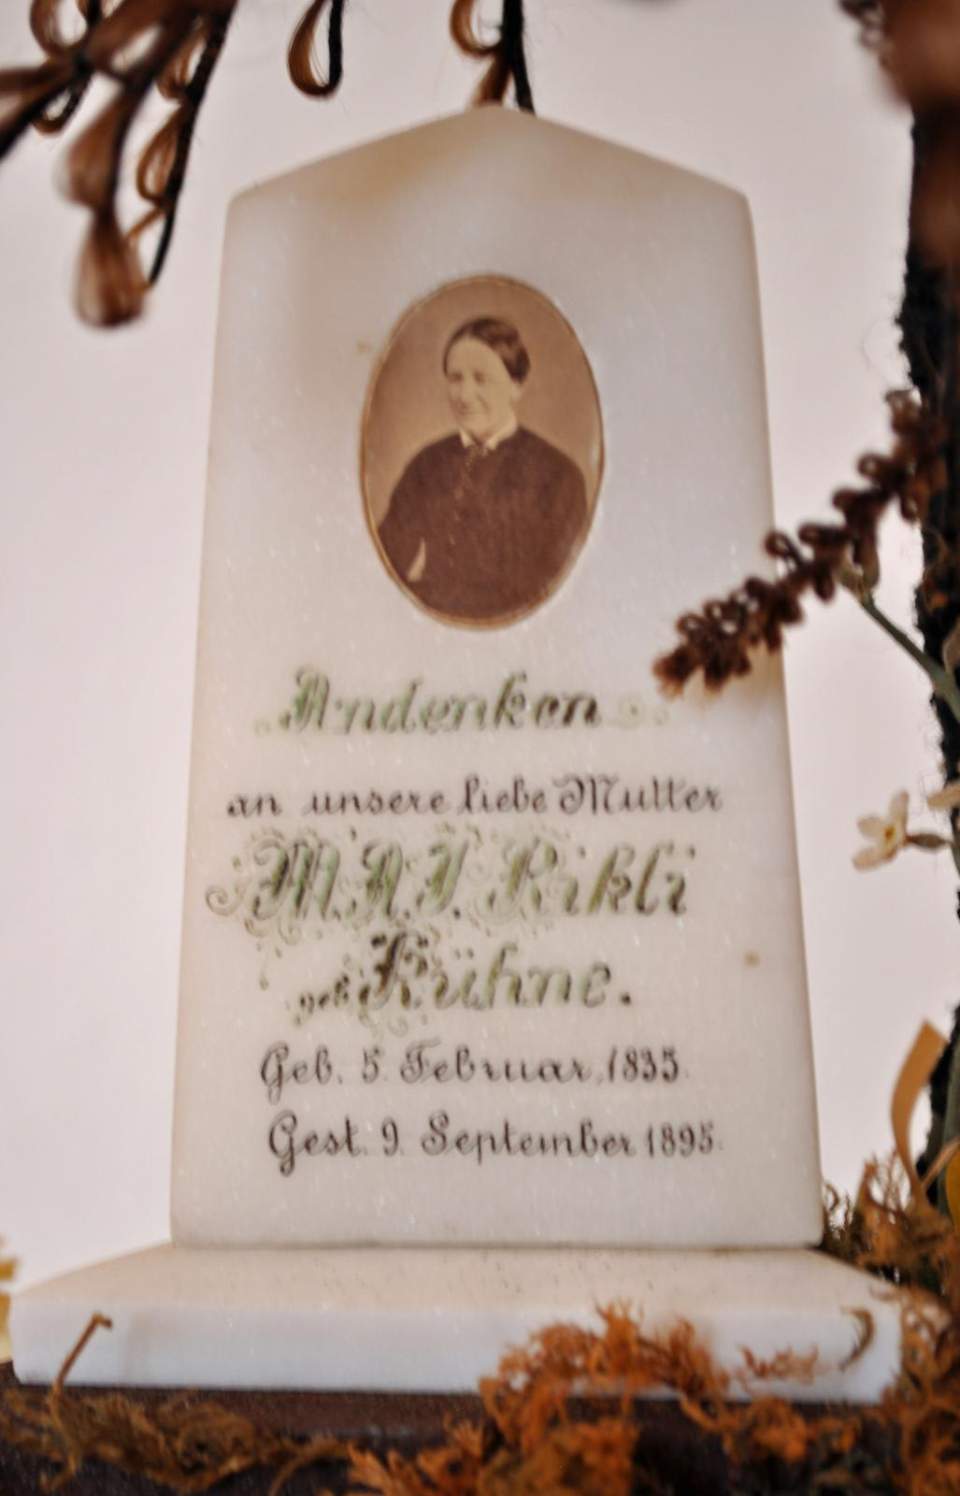 Andenken
an unsere liebe Mutter
M. A. J. Rikli
geb. Kühne.
Geb. 5. Februar, 1835.
Gest. 9. September 1895.